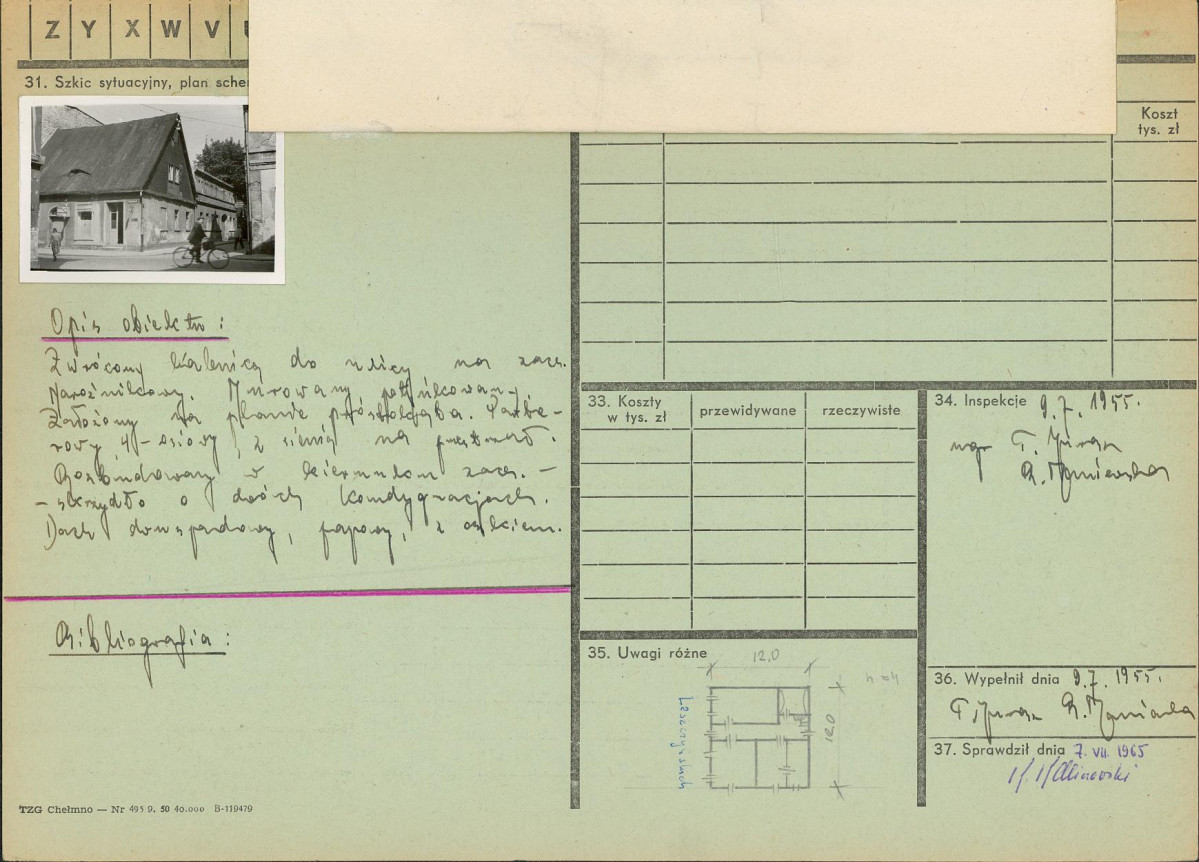 Z Y X W V
31. Szkic sytuacyjny, plan
Koszt
tys. zł
Opis obiektu:
Zwrócony kalenicą do ulicy na zach.
Narożnikowy. Murowany, otynkowany.
Założony na planie prostokąta. Parte-
rowy, 4-osiowy, z sienią na przestrzał.
Rozbudowany w kierunku zach. –
– skrzydło o dwóch kondygnacjach.
Dach dwuspadowy, papowy, z
Bibliografia:
33. Koszty
w tys. zł
przewidywane
rzeczywiste
34. Inspekcje 9.7.1955.
mgr
35. Uwagi różne
12,0
12,0
h=4
Leszczyńskich
36. Wypełnił dnia 9.7.1955.
37. Sprawdził dnia 7.VII.1965
Kalinowski
TZG Chełmno — Nr 495 9. 50 40.000 B-119479